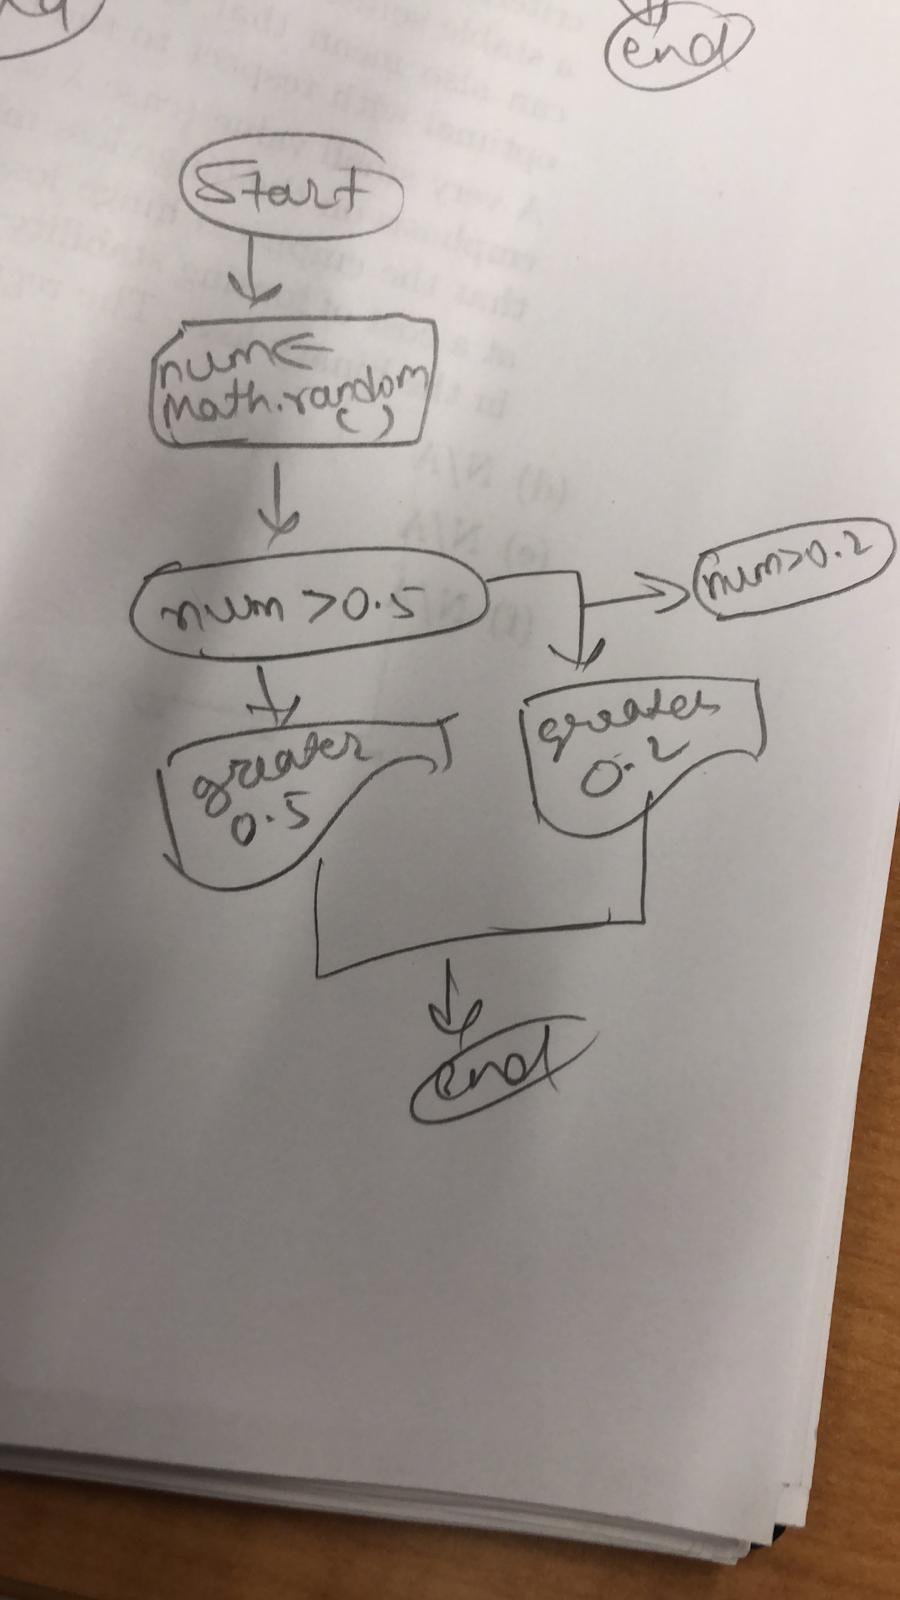 end
Start
num←
Math.random
()
num >0.5
num>0.2
greater
0.5
greater
0.2
end